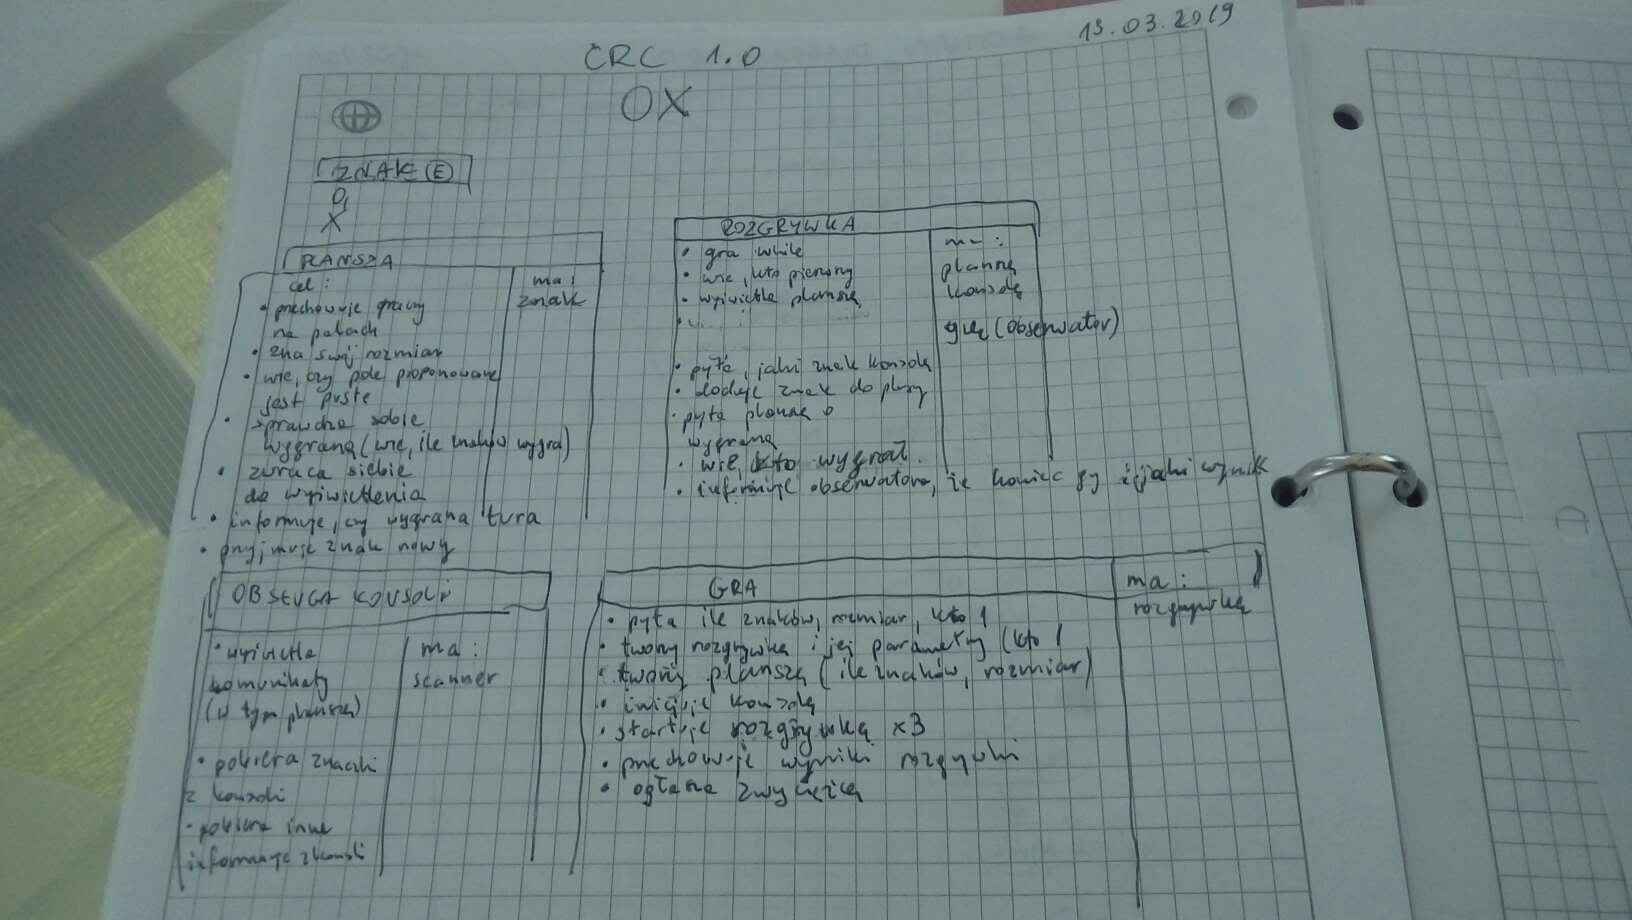 13.03.2019
CRC 1.0
OX
ZNAK (E)
O,
X
PLANSZA
cel:
• przechowuje graczy
na polach
• zna swój rozmiar
• wie, czy pole proponowane
jest puste
• sprawdza sobie
wygraną (wie, ile znaków wygra)
• zwraca siebie
do wyświetlenia
• informuje, czy wygrana tura
• przyjmuje znak nowy
ma:
znak
ROZGRYWKA
• gra while
• wie, kto pierwszy
• wyświetla planszę
• pyta, jaki znak konsolę
• dodaje znak do planszy
• pyta planszę o
wygraną
• wie, kto wygrał.
• informuje obserwatora, że koniec gry i jaki wynik
ma:
planszę
konsolę
grę (obserwator)
OBSŁUGA KONSOLI
• wyświetla
komunikaty
(w tym planszę)
• pobiera znaczki
z konsoli
• pobiera inne
informacje z konsoli
ma:
scanner
GRA
• pyta ile znaków, rozmiar, kto 1
• tworzy rozgrywkę i jej parametry (kto 1
• tworzy planszę (ile znaków, rozmiar)
• inicjuje konsolę
• startuje rozgrywkę x3
• przechowuje wyniki rozgrywki
• ogłasza zwycięzcę
ma:
rozgrywkę